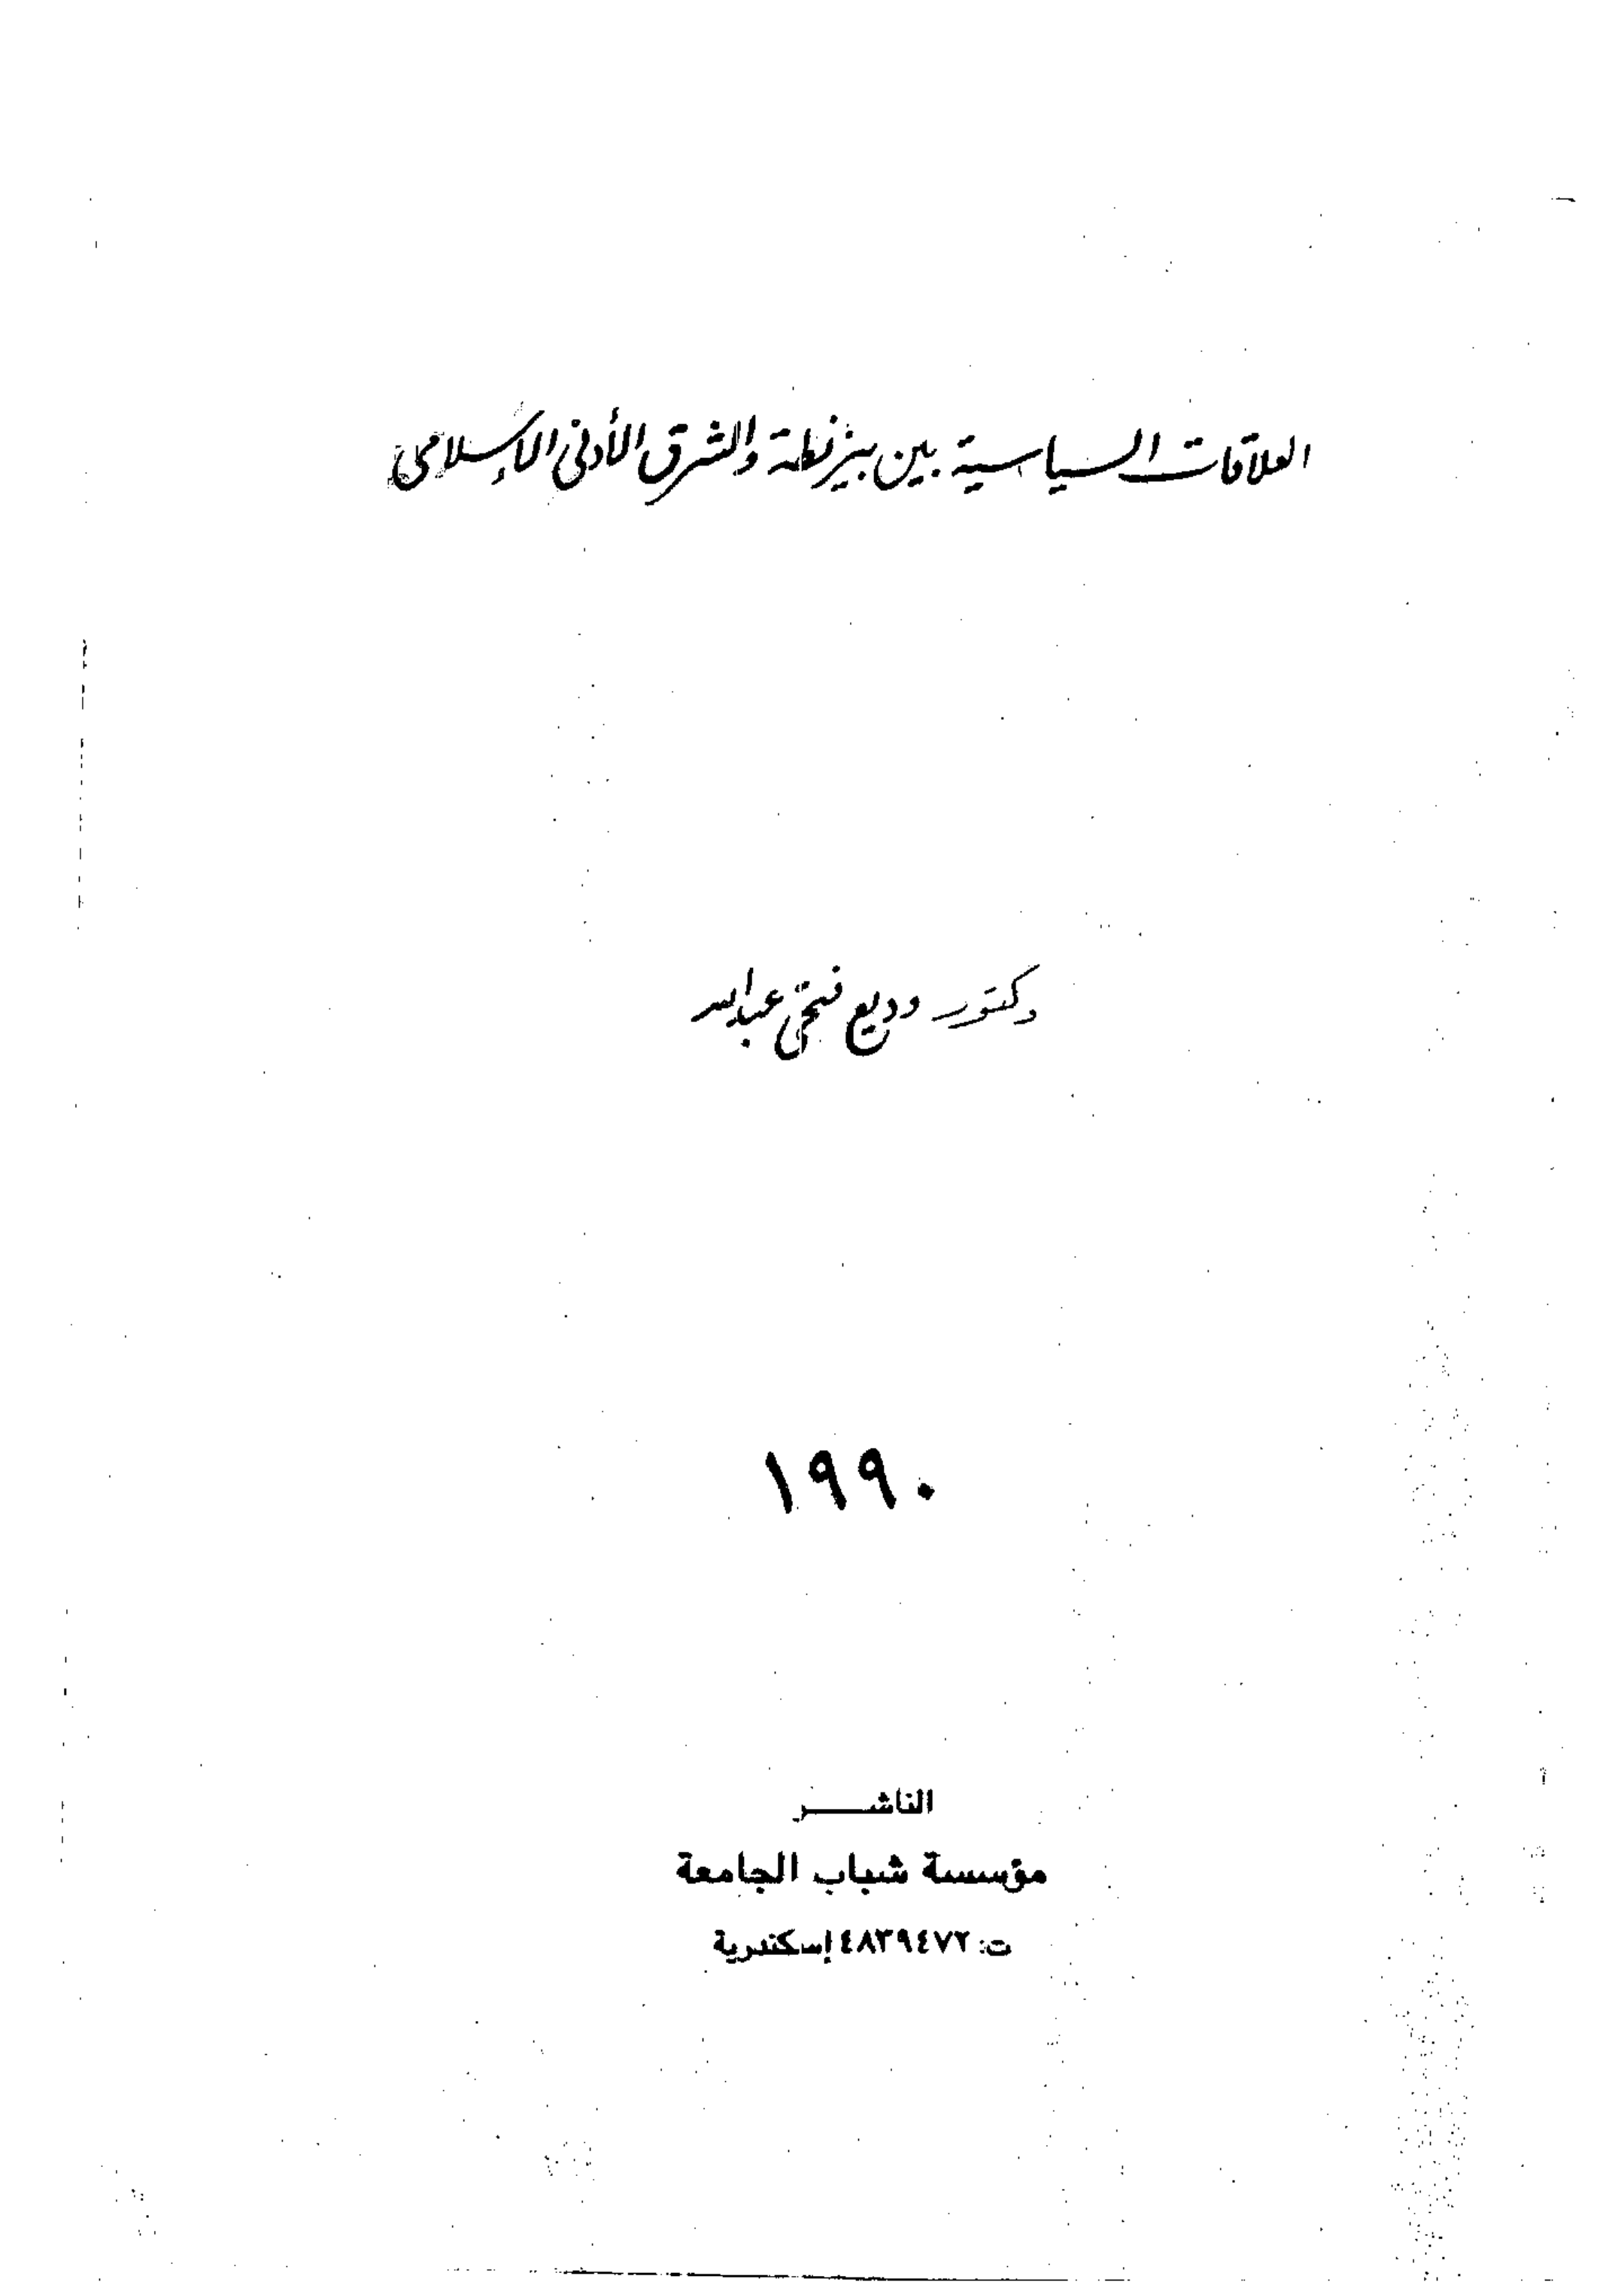 العلاقات السياسية بين بيزنطة والشرق الأدنى الإسلامى
دكتور وديع فتحى عبدالله
١٩٩٠
الناشر
مؤسسة شباب الجامعة
ت: ٤٨٣٩٤٧٢ إسكندرية